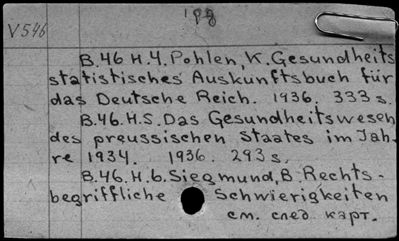 V 546
B.46 H.4. Pohlen, K. Gesundheits
statistisches Auskunftsbuch für
das Deutsche Reich. 1936. 333 s.
B.46. H.5. Das Gesundheitswesen
des preussischen Staates im Jah-
re 1934. 1936. 293 s.
B.46. H.6. Siegmund, B. Rechts-
begriffliche Schwierigkeiten
см. след. карт.